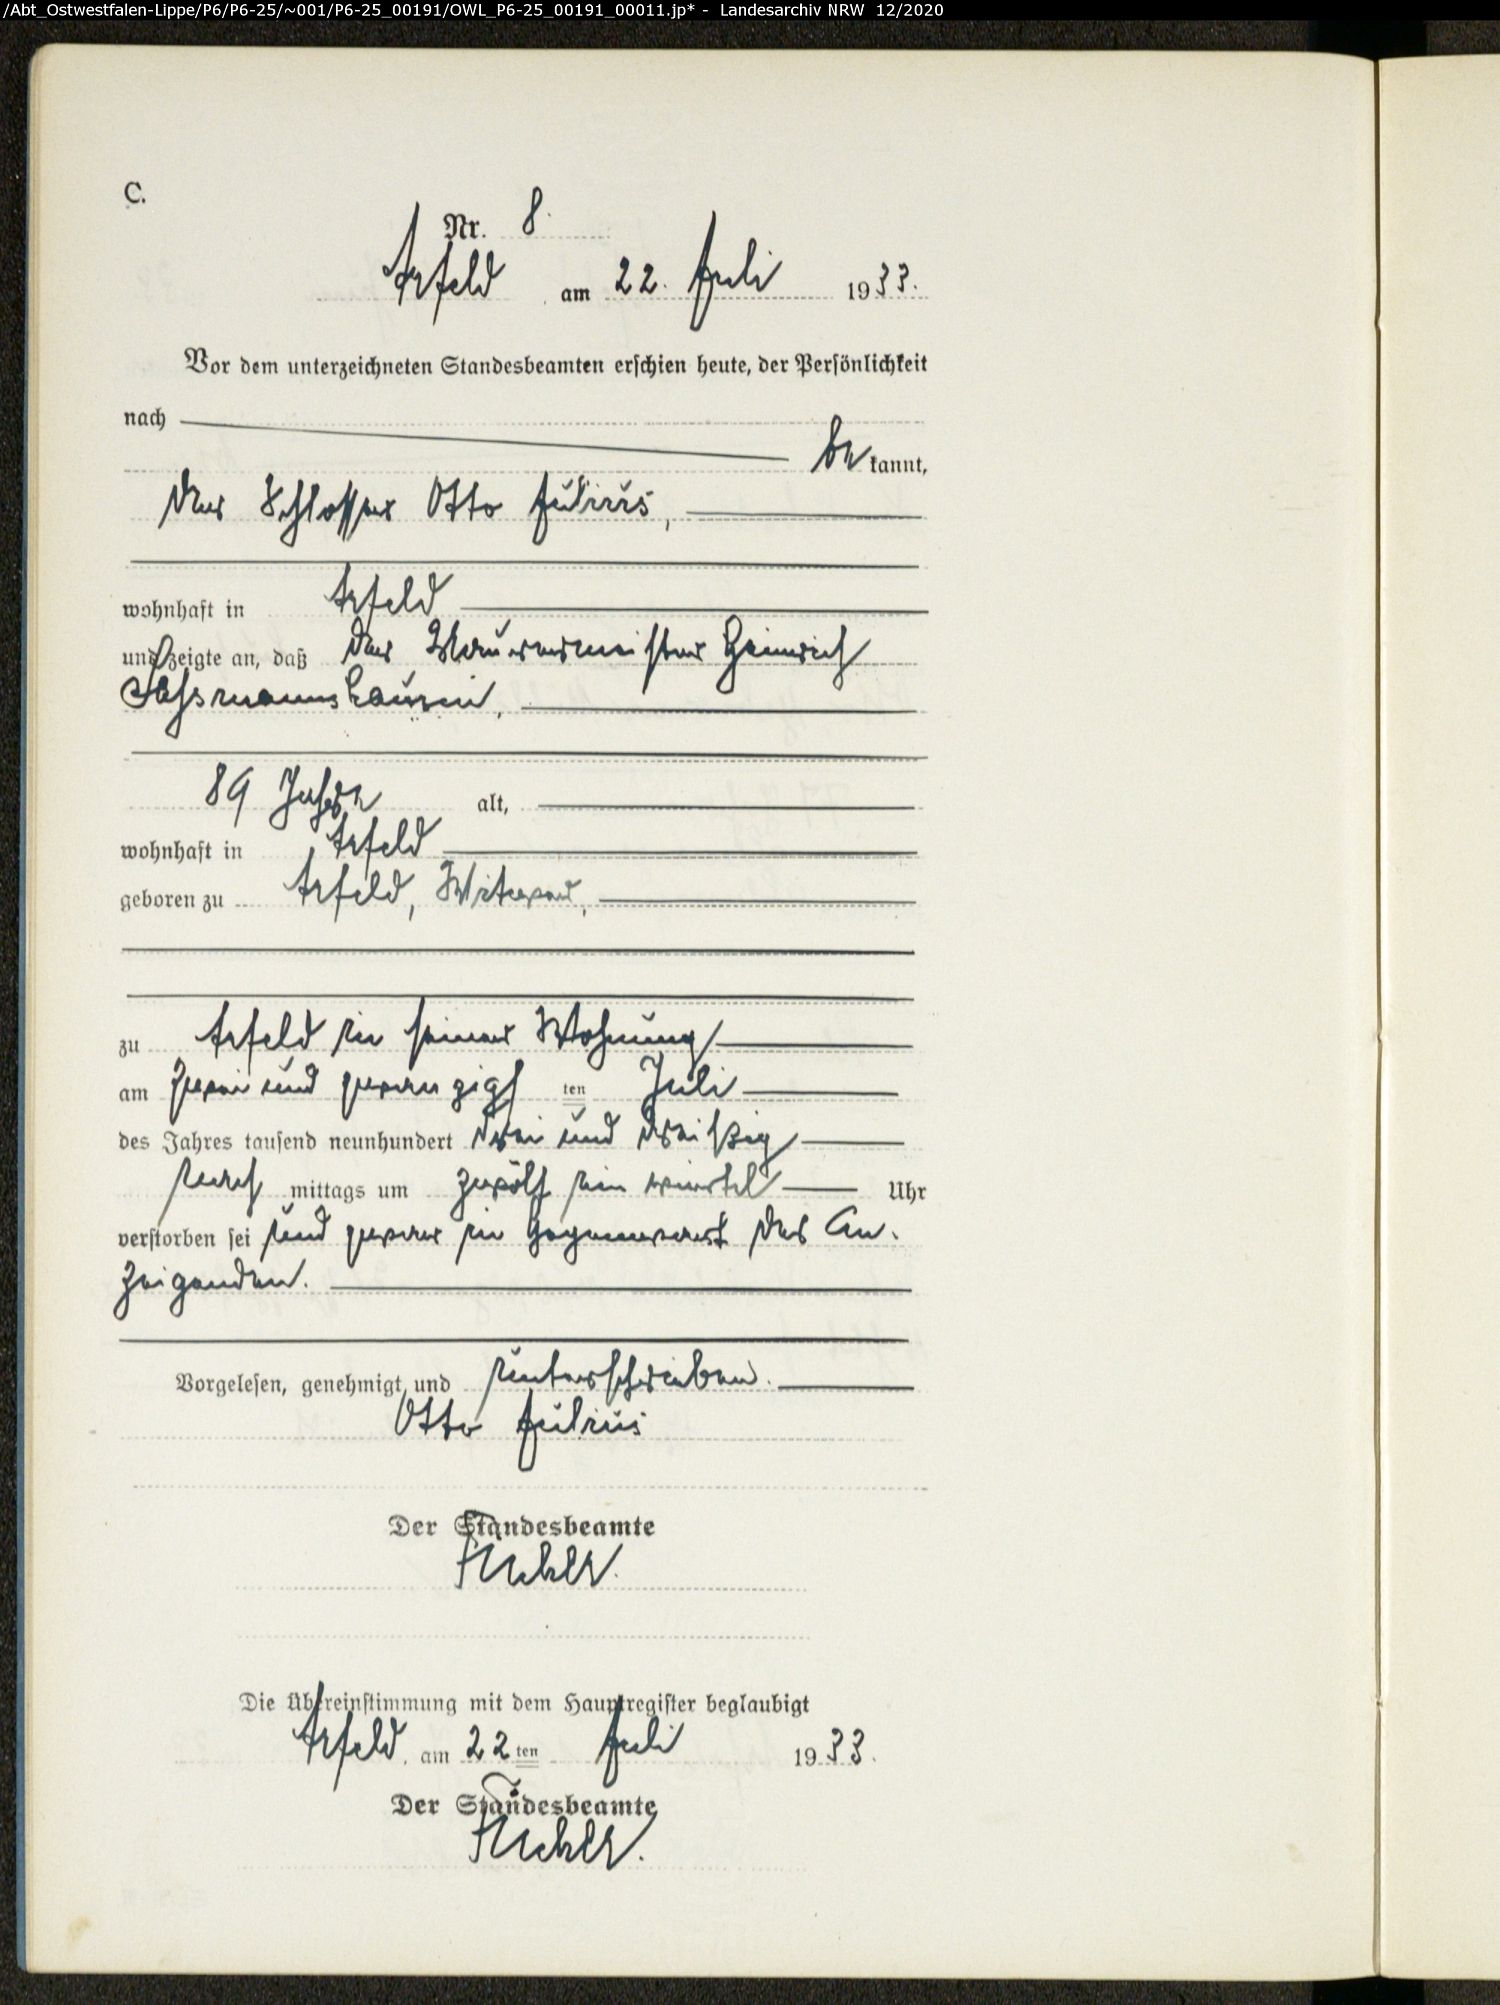 /Abt_Ostwestfalen-Lippe/P6/P6-25/~001/P6-25_00191/OWL_P6-25_00191_00011.jp* - Landesarchiv NRW 12/2020
C.
Nr. 8.
Arfeld am 22. Juli 1933.
Vor dem unterzeichneten Standesbeamten erschien heute, der Persönlichkeit
nach
bekannt,
der Schlosser Otto Julius,
wohnhaft in Arfeld
und zeigte an, daß der Maurermeister Heinrich
Sassmannshausen,
89 Jahre alt,
wohnhaft in Arfeld
geboren zu Arfeld, Witwer,
zu Arfeld in seiner Wohnung
am zwei und zwanzigsten Juli
des Jahres tausend neunhundert drei und dreißig
nach mittags um zwölf ein viertel Uhr
verstorben sei und zwar in Gegenwart des An-
zeigenden.
Vorgelesen, genehmigt und unterschrieben.
Otto Julius
Der Standesbeamte
Die Übereinstimmung mit dem Hauptregister beglaubigt
Arfeld, am 22ten Juli 1933.
Der Standesbeamte